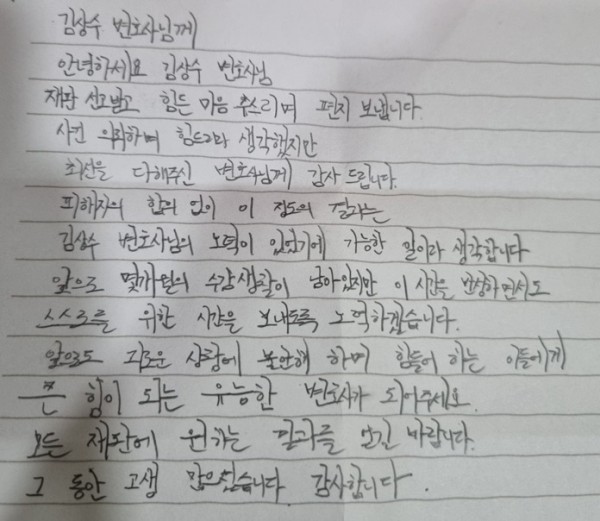 김상수 변호사님께
안녕하세요 김상수 변호사님
재판 선고받고 힘든 마음 추스리며 편지 보냅니다.
사건 의뢰하며 힘드리라 생각했지만
최선을 다해주신 변호사님께 감사 드립니다.
피해자의 합의 없이 이 정도의 결과는
김상수 변호사님의 노력이 있었기에 가능한 일이라 생각합니다
앞으로 몇개월의 수감생활이 남아있지만 이 시간을 반성하면서도
스스로를 위한 시간을 보내도록 노력하겠습니다.
앞으로도 괴로운 상황에 불안해 하며 힘들어 하는 이들에게
큰 힘이 되는 유능한 변호사가 되어주세요.
모든 재판에 원하는 결과를 얻길 바랍니다.
그 동안 고생 많으셨습니다 감사합니다.